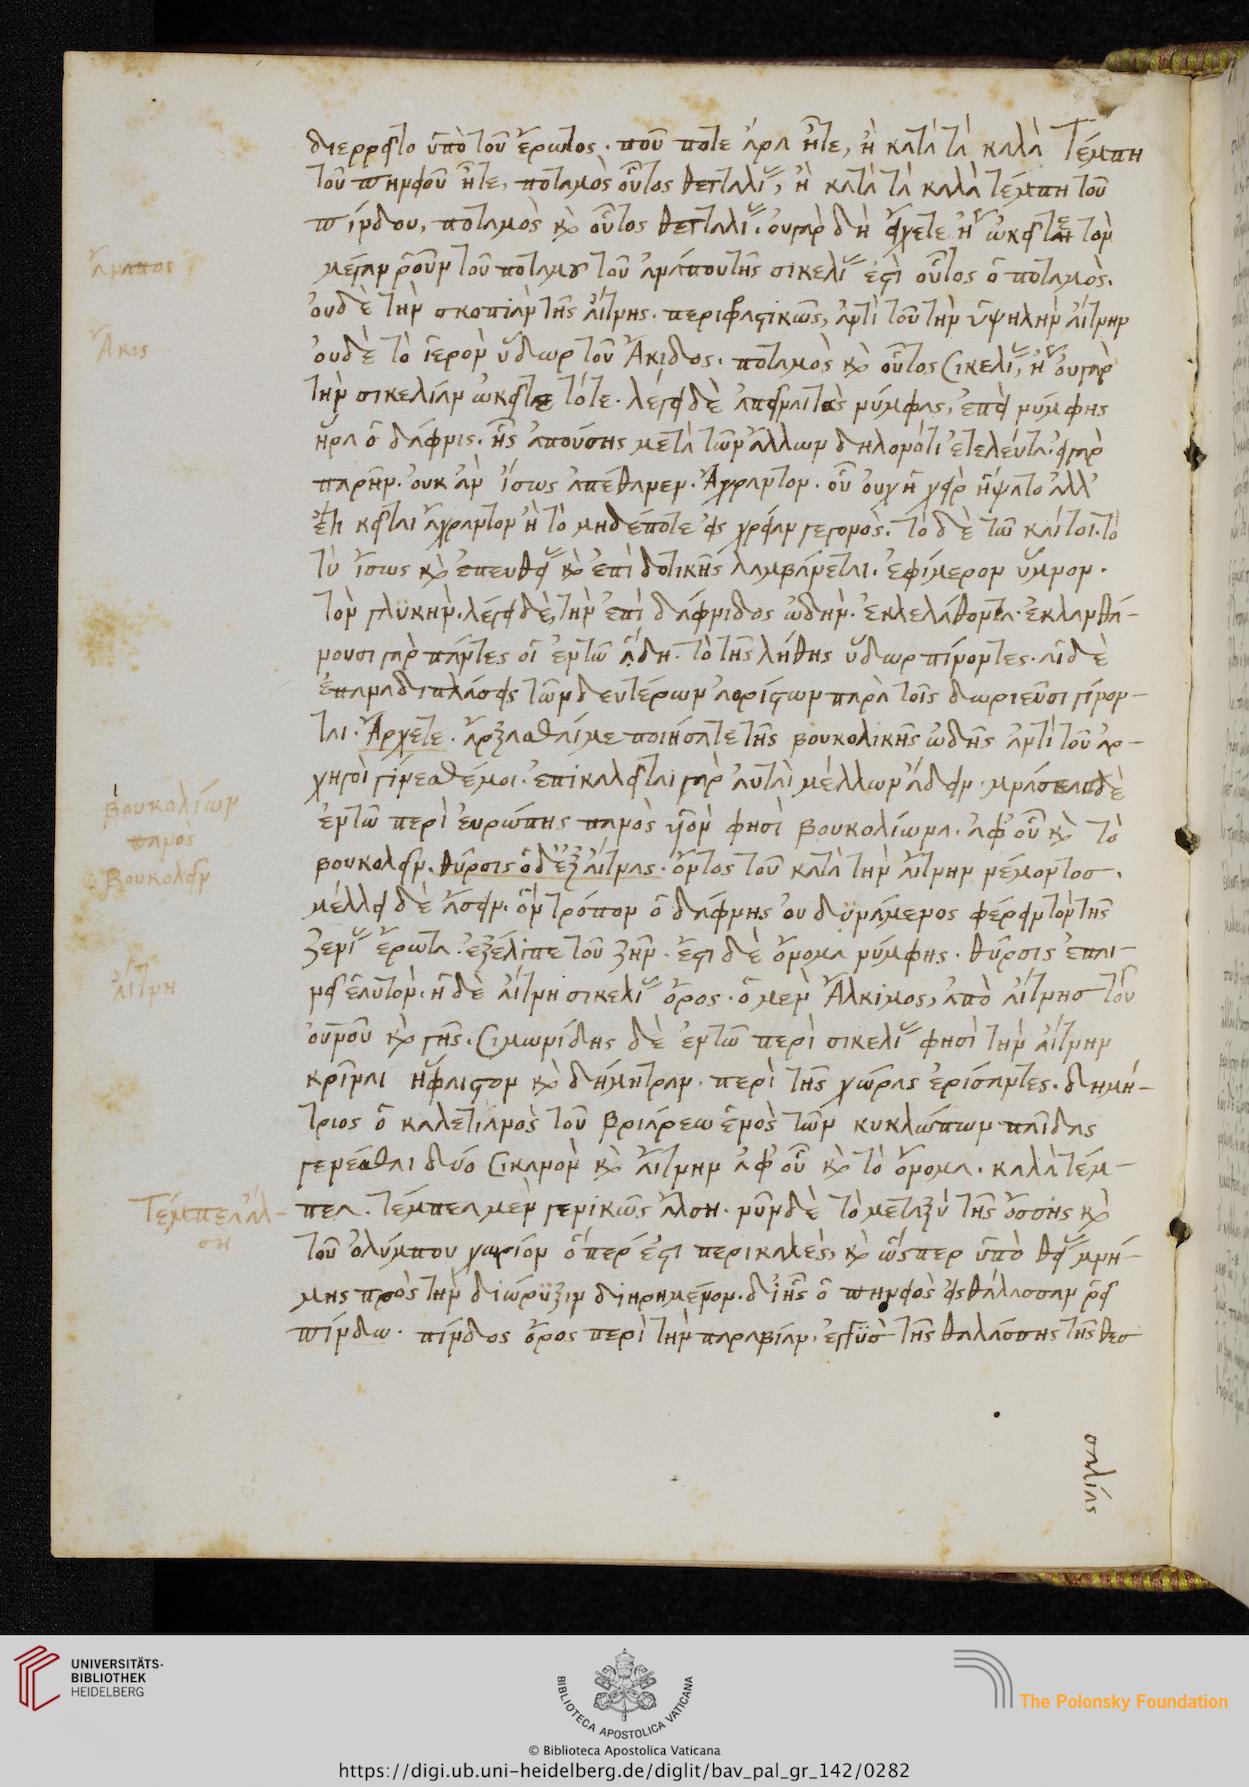 διερρεῖτο ὑπὸ τοῦ ἔρωτος. ποῦ ποτε ἄρα ἦτε, ἢ κατὰ τὰ καλὰ Τέμπη
τοῦ πηνειοῦ ἦτε, ποταμὸς οὗτος θετταλί, ἢ κατὰ τὰ καλὰ τέμπη τοῦ
πίνδου, ποταμὸς κ οὗτος θετταλί. οὐ γὰρ δὴ εἴχετε ἢ ὠκεῖτε τὸν
Ἄναπος
μέγαν ῥοῦν τοῦ ποταμοῦ τοῦ ἀνάπου τῆς σικελί ἐστὶ οὗτος ὁ ποταμὸς.
οὐδὲ τὴν σκοπιὰν τῆς αἴτνης. περιφραστικῶς, ἀντὶ τοῦ τὴν ὑψηλὴν αἴτνην
Ἄκις
οὐδὲ τὸ ἱερὸν ὕδωρ τοῦ Ἄκιδος. ποταμὸς κ οὗτος Σικελί, ἢ οὐ γὰρ
τὴν σικελίαν ὠκεῖτε τότε. λέγει δὲ ἀπεῖναι τὰς νύμφας, ἐπεὶ νύμφης
ἤρα ὁ δάφνις. ἧς ἀπούσης μετὰ τῶν ἄλλων δηλονότι ἐτελεύτα. εἰ γὰρ
παρῆν. οὐκ ἂν ἴσως ἀπέθανεν. Ἄχραντον. οὗ οὐχὴ χεὶρ ἥψατο ἀλλ'
ἔτι κεῖται ἄχραντον ἢ τὸ μηδέποτε εἰς χρείαν γεγονὸς. τὸ δὲ τῶ καίτοι. τὸ
τὺ ἴσως κ ἐπευθεί κ ἐπὶ δοτικῆς λαμβάνεται. ἐφίμερον ὕμνον.
τὸν γλϋκὴν. λέγει δὲ, τὴν ἐπὶ δάφνιδος ὠδὴν. ἐκλελάθοντα. ἐκλανθά-
νουσι γὰρ πάντες οἱ ἐν τῶ ἅδη. τὸ τῆς λήθης ὕδωρ πίνοντες. αἱ δὲ
ἐπαναδιπλάσεις τῶν δευτέρων ἀορίστων παρὰ τοῖς δωριεῦσι γίνον-
ται. Ἄρχετε. ἄρξασθαί με ποιήσατε τῆς βουκολικῆς ὠδῆς ἀντὶ τοῦ ἀρ-
χηγοὶ γίνεσθέ μοι. ἐπικαλεῖται γὰρ αὐτὰς μέλλων ἄδειν. μνασέας δὲ
Βουκολίων
πανὸς
Βουκολεῖν
ἐν τῶ περὶ εὐρώπης πανὸς υἱὸν φησὶ βουκολίωνα. ἀφ' οὗ κ τὸ
βουκολεῖν. θύρσις ὁδ' ἐξ αἴτνας. ὄντος τοῦ κατὰ τὴν αἴτνην μένοντοσ.
μέλλει δὲ ἄσειν. ὃν τρόπον ὁ δάφνης οὐ δϋνάμενος φέρειν τὸν τῆς
ξενί ἔρωτα. ἐξέλιπε τοῦ ζῆν. ἔστι δὲ ὄνομα νύμφης. θύρσις ἐπαι-
Αἴτνη
νεῖ ἑαυτὸν. ἡ δὲ αἴτνη σικελί ὄρος. ὁ μὲν Ἄλκιμος, ἀπὸ αἴτνησ τοῦ
οὐνοῦ κ γῆς. Σιμωνίδης δὲ ἐν τῶ περὶ σικελί φησὶ τὴν αἴτνην
κρῖναι ἥφαιστον κ δήμητραν. περὶ τῆς χώρας ἐρίσαντες. δημή-
τριος ὁ καλετιανὸς τοῦ βριάρεω ἑνὸς τῶν κυκλώπων παῖδας
γενέσθαι δύο Σικανὸν κ αἴτνην ἀφ' οὗ κ τὸ ὄνομα. καλὰ τέμ-
Τέμπεα ἄλ-
ση
πεα. τέμπεα μὲν γενικῶς ἄλση. νῦν δὲ τὸ μεταξὺ τῆς ὄσσης κ
τοῦ ὀλύμπου χωρίον ὅπέρ ἐστι περικαλὲς, κ ὥσπερ ὑπὸ θεί μνή-
μης πρὸς τὴν διώρϋξιν διηρημένον. δι' ἧς ὁ πηνειὸς εἰς θάλασσαν ῥεῖ
πίνδω. πίνδος ὄρος περὶ τὴν παραβίαν. ἐγγϋσ τῆς θαλάσσης τῆς θεσ
σαλίας
UNIVERSITÄTS-
BIBLIOTHEK
HEIDELBERG
BIBLIOTECA APOSTOLICA VATICANA
The Polonsky Foundation
© Biblioteca Apostolica Vaticana
https://digi.ub.uni-heidelberg.de/diglit/bav_pal_gr_142/0282